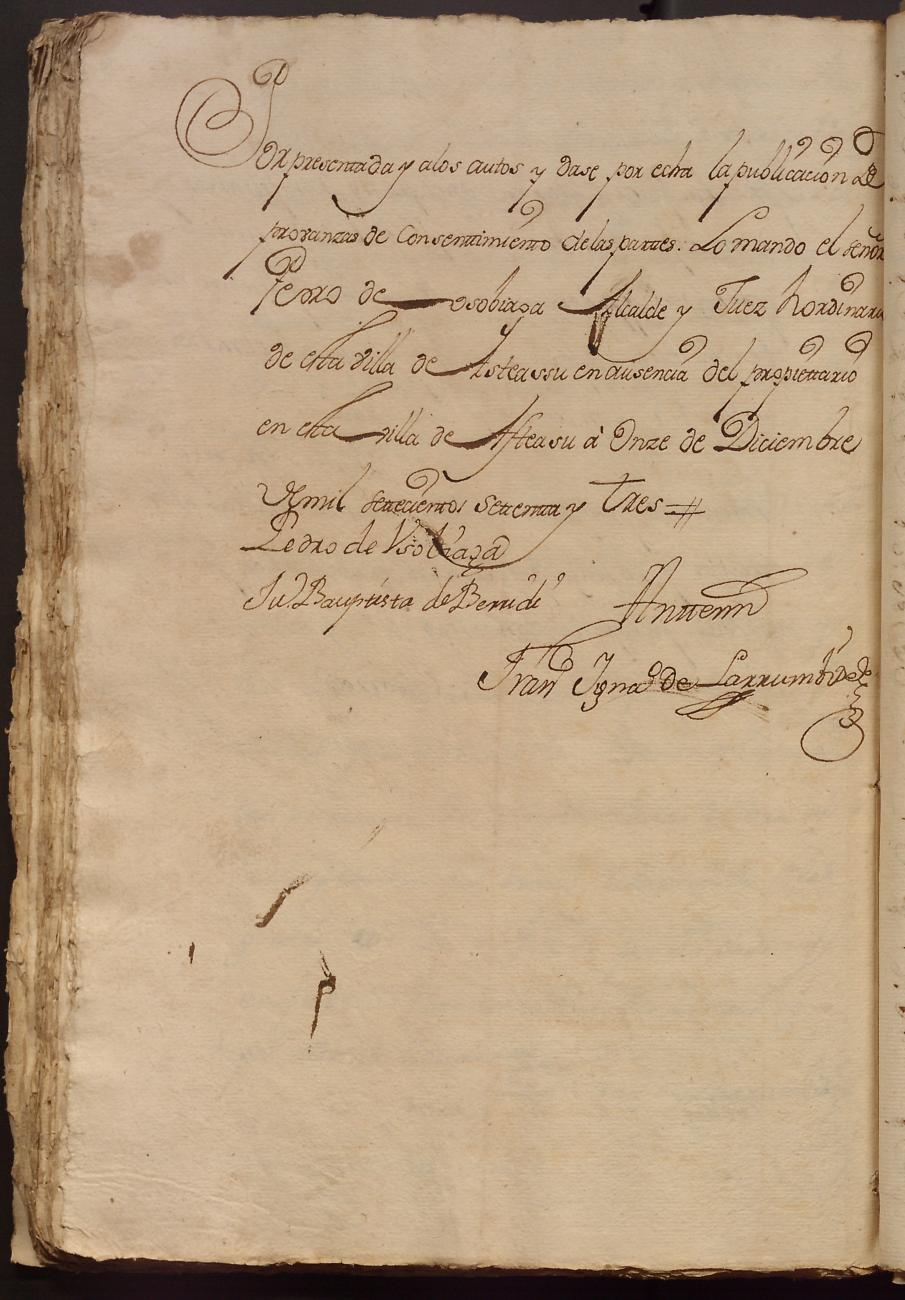 Por presentada y alos autos y dase por echa la publicación de
provanzas de Consentimiento delas partes. Lo mando el señor
Pedro de Vsobiaga Alcalde y Juez hordinario
de esta villa de Asteassu en ausencia del propietario
en esta villa de Asteasu à Onze de Diciembre
de mil setecientos setenta y tres
Pedro de Vsobiaga
Jun Bauptista de
Antemi
Fran Ignaº de Larrumbide